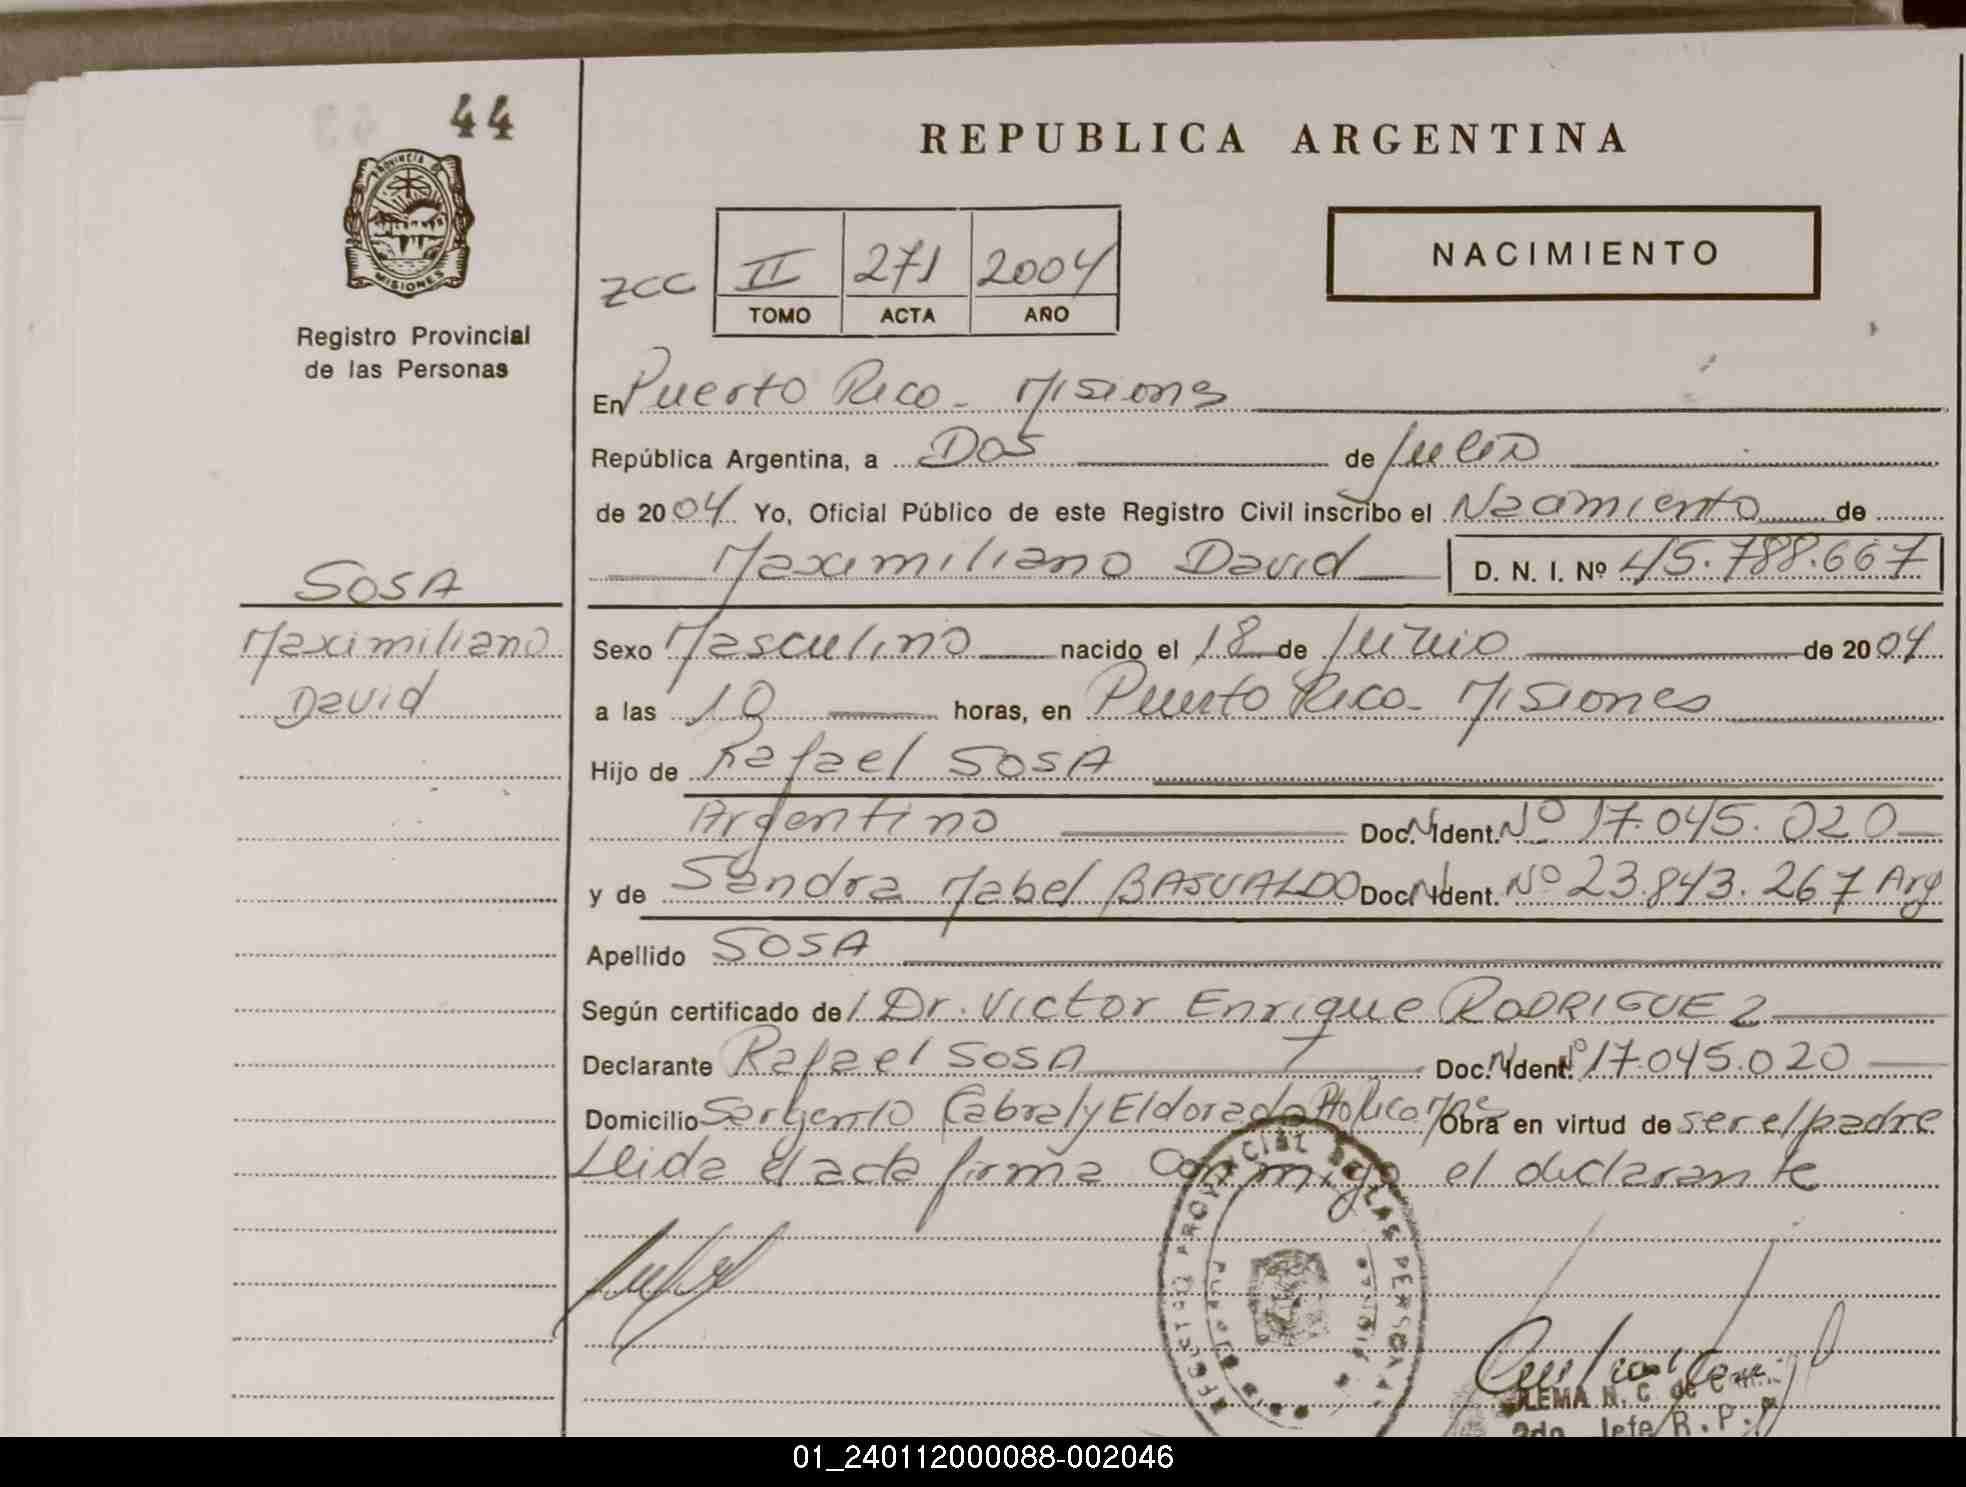 44
PROVINCIA DE
MISIONES
Registro Provincial
de las Personas
REPUBLICA ARGENTINA
NACIMIENTO
ZCC II 271 2004
TOMO ACTA AÑO
En Puerto Rico - Misiones
República Argentina, a Dos de Julio
de 2004 Yo, Oficial Público de este Registro Civil inscribo el Nacimiento de
Maximiliano David D. N. I. Nº 45.788.667
SOSA
Maximiliano
David
Sexo Masculino nacido el 18 de Junio de 2004
a las 10 horas, en Puerto Rico - Misiones
Hijo de Rafael SOSA
Argentino Doc. N. Ident. Nº 17.045.020
y de Sandra Mabel BASUALDO Doc. N. Ident. Nº 23.843.267 Arg
Apellido SOSA
Según certificado del Dr. Victor Enrique RODRIGUEZ
Declarante Rafael SOSA Doc. N. Ident. Nº 17.045.020
Domicilio Sargento Cabral y Eldorado Pto Rico Mnes Obra en virtud de ser el padre
Leida el acta firma conmigo el declarante
REGISTRO PROVINCIAL DE LAS PERSONAS
PUERTO RICO
MISIONES
LEMA N. C. de
2do. Jefe R. P.
01_240112000088-002046